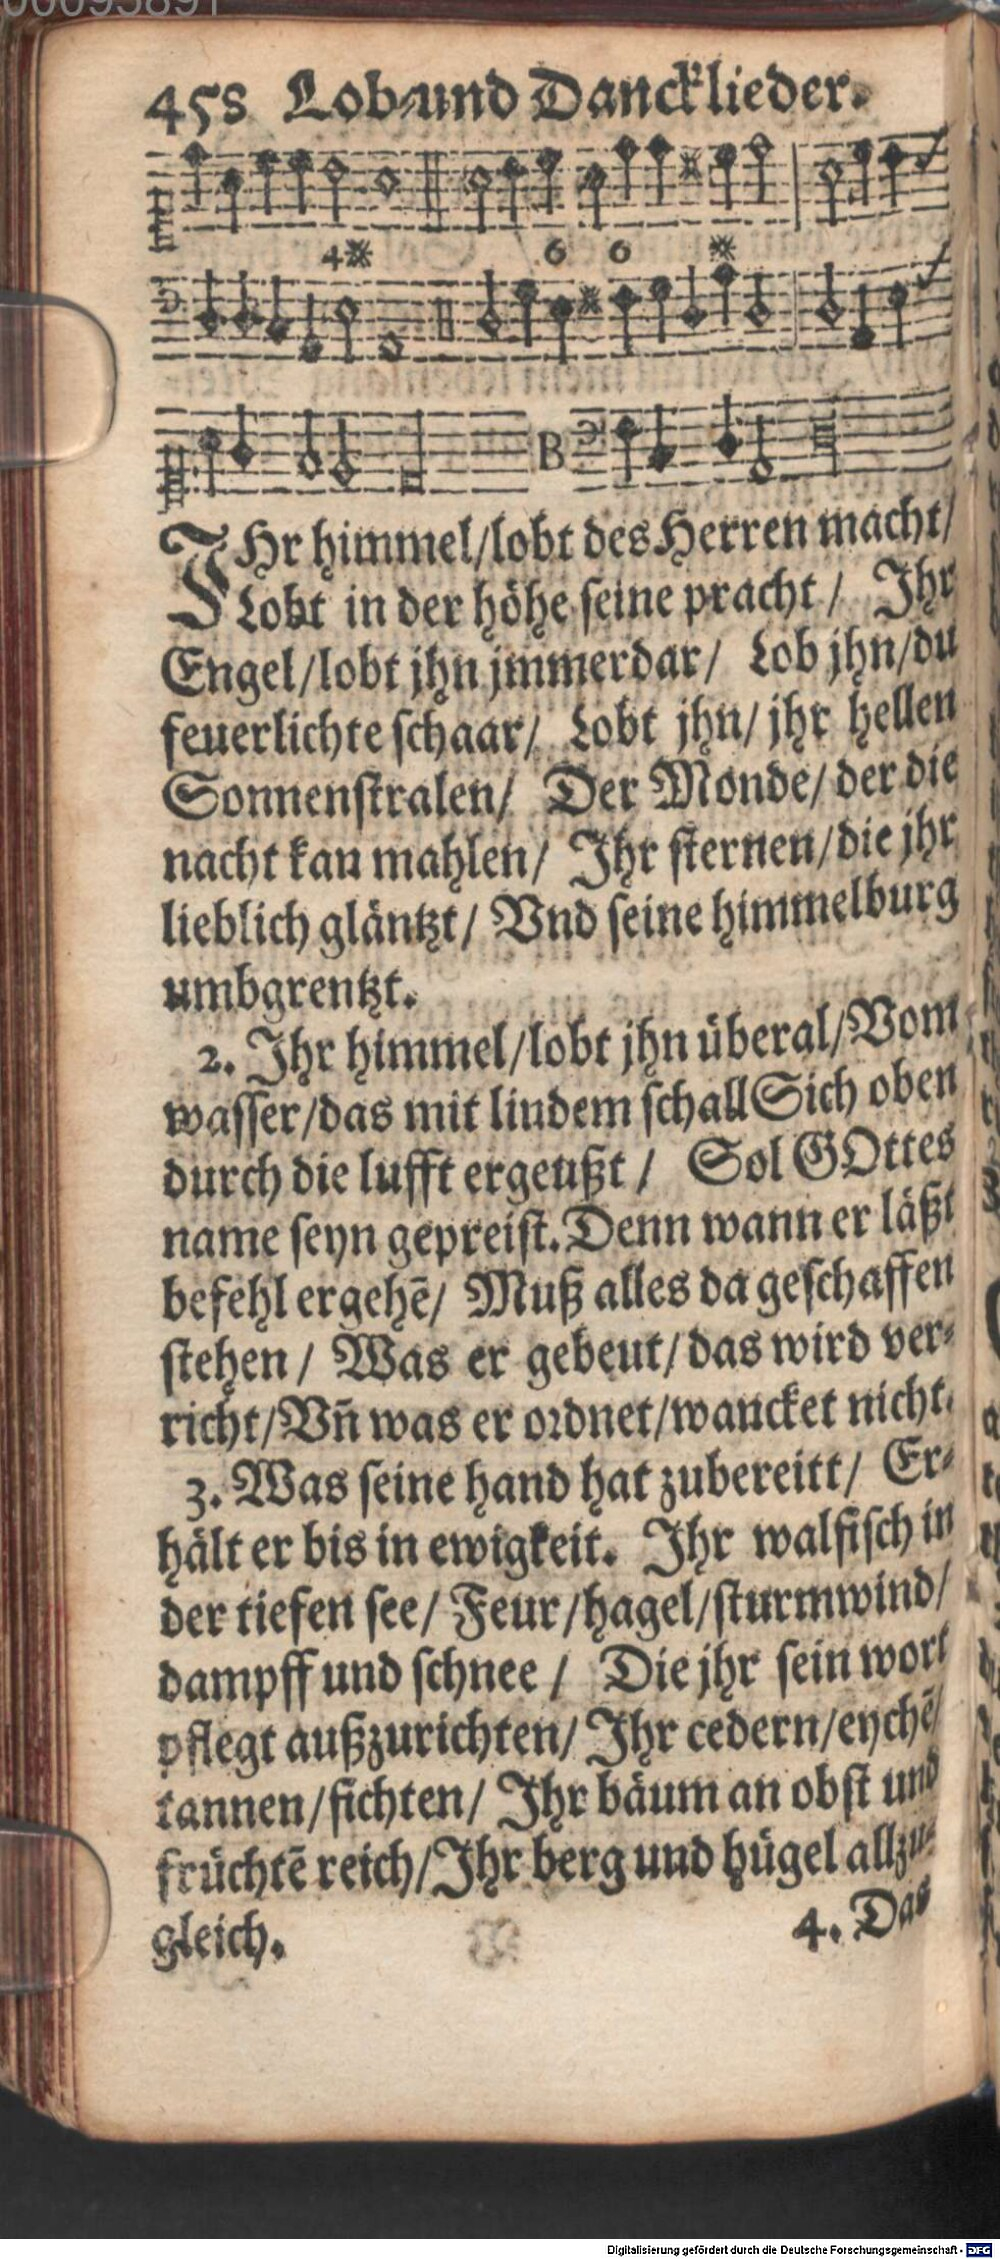 00095891
458 Lob-und Dancklieder.
4* 6 6 *
B
IHr himmel/lobt des Herren macht/
Lobt in der höhe seine pracht / Ihr
Engel/lobt jhn jmmerdar/ Lob jhn/du
feuerlichte schaar/ Lobt jhn/ jhr hellen
Sonnenstralen/ Der Monde/ der die
nacht kan mahlen/ Ihr sternen/die jhr
lieblich gläntzt/ Vnd seine himmelburg
umbgrentzt.
2. Ihr himmel/lobt jhn überal/Vom
wasser/das mit lindem schall Sich oben
durch die lufft ergeußt / Sol GOttes
name seyn gepreist. Denn wann er läßt
befehl ergehē/ Muß alles da geschaffen
stehen / Was er gebeut/das wird ver-
richt/Vñ was er ordnet/wancket nicht.
3. Was seine hand hat zubereitt/ Er-
hält er bis in ewigkeit. Ihr walfisch in
der tiefen see/ Feur/hagel/sturmwind/
dampff und schnee / Die jhr sein wort
pflegt außzurichten/ Ihr cedern/eychē/
tannen/fichten/ Ihr bäum an obst und
früchtē reich/Ihr berg und hügel allzu-
gleich.
4. Das
Digitalisierung gefördert durch die Deutsche Forschungsgemeinschaft - DFG